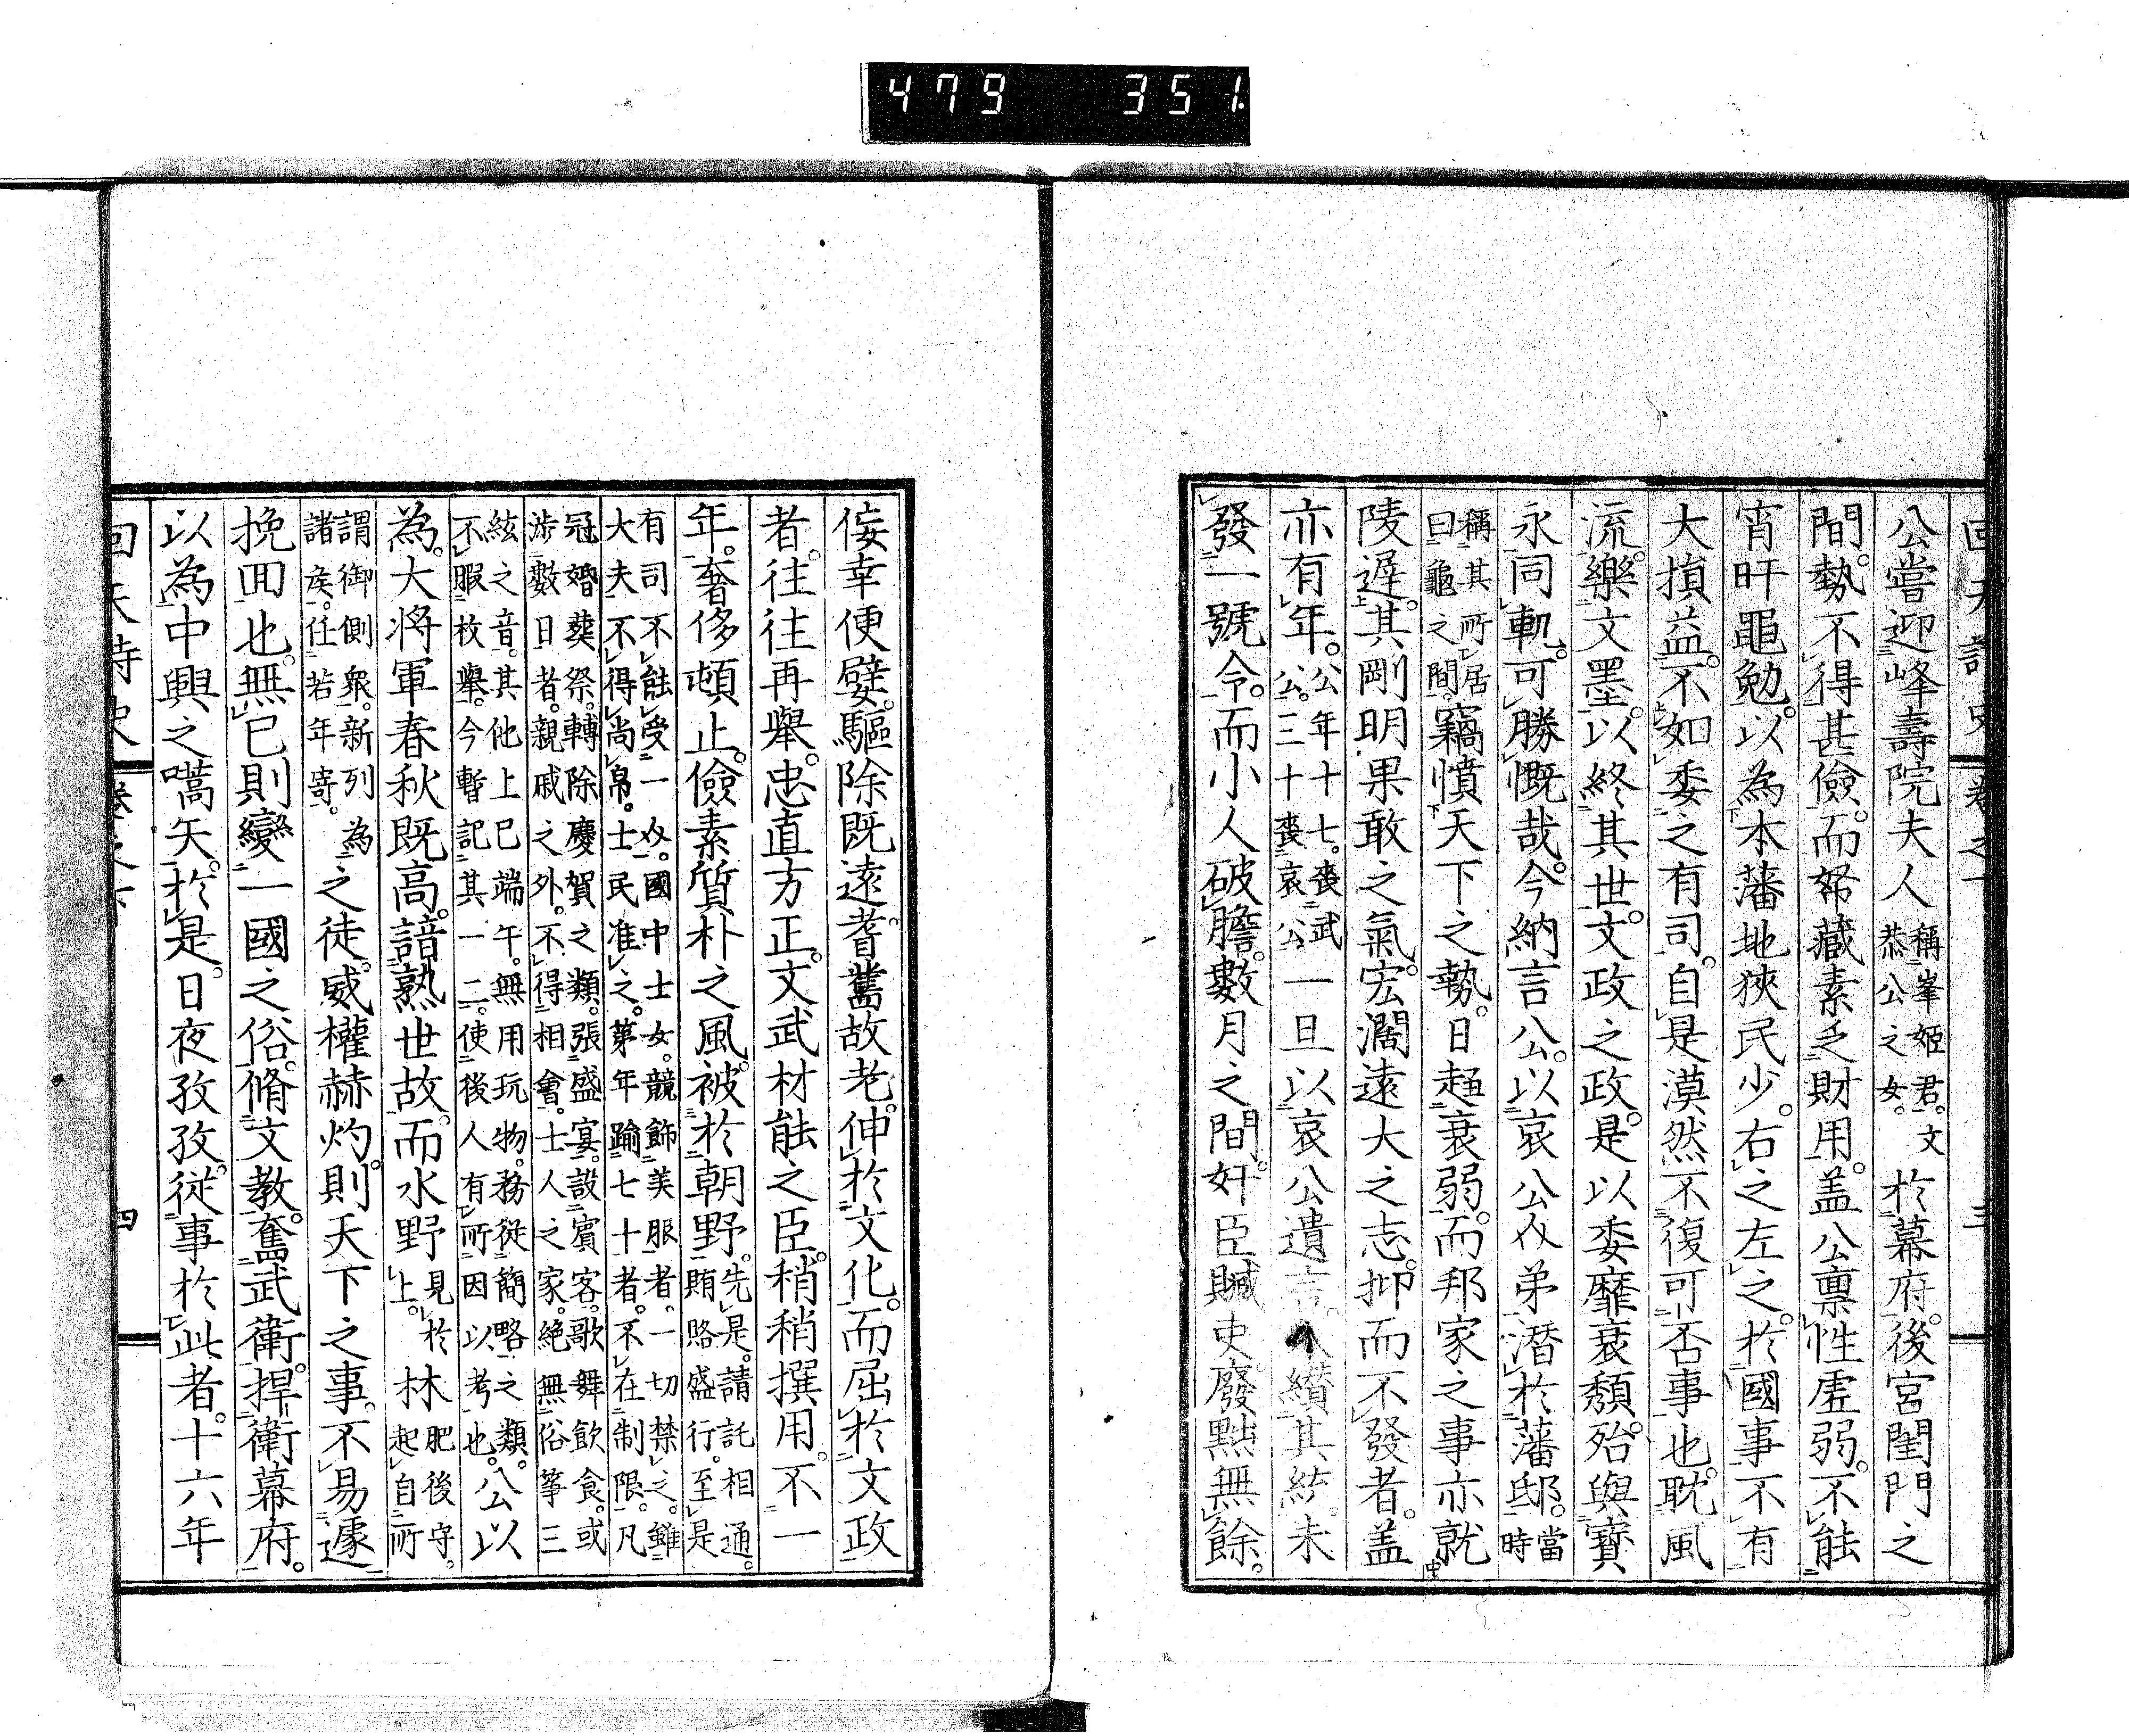 479 351
回天詩史 卷之下 三
公嘗迎峰壽院夫人稱峯姬君。文恭公之女。於幕府。後宮閨門之
間。勢不得甚儉。而帑藏素乏財用。盖公禀性虛弱。不能
宵旰黽勉。以為本藩地狹民少。右之左之。於國事不有
大損益。不如委之有司。自是漠然不復可否事也。耽風
流。樂文墨。以終其世。文政之政。是以委靡衰頹。殆與寶
永同軌。可勝慨哉。今納言公。以哀公介弟。潛於藩邸。當時
稱其所居曰龜之間。竊憤天下之勢。日趨衰弱。而邦家之事亦就
陵遲。其剛明果敢之氣。宏濶遠大之志。抑而不發者。盖
亦有年。公年十七。喪武公。三十喪哀公。一旦以哀公遺言。入纘其統。未
發一號令。而小人破膽。數月之間。奸臣贓吏。廢黜無餘。
佞幸便嬖。驅除既遠。耆舊故老。伸於文化。而屈於文政
者。往往再舉。忠直方正。文武材能之臣。稍稍撰用。不一
年。奢侈頓止。儉素質朴之風。被於朝野。先是。請託相通。賄賂盛行。至是
有司不能受一必。國中士女。競飾美服者。一切禁之。雖大夫不得尚帛。士民准之。第年踰七十者。不在制限。凡
冠婚葬祭。轉除慶賀之類。張盛宴。設賓客。歌舞飲食。或涉數日者。親戚之外。不得相會。士人之家。絶無俗筝三
絃之音。其他上巳端午。無用玩物。務從簡略之類。不暇枚舉。今暫記其一二。使後人有所因以考也。公以
為。大将軍春秋既高。諳熟世故。而水野見於上。林肥後守。林起自所
謂御側衆。新列諸矦。任若年寄。為之徒。威權赫灼。則天下之事。不易遽
挽回也。無已則變一國之俗。脩文教。奮武衛。捍衛幕府。
以為中興之嚆矢。於是。日夜孜孜。從事於此者。十六年
回天詩史 卷之下 四